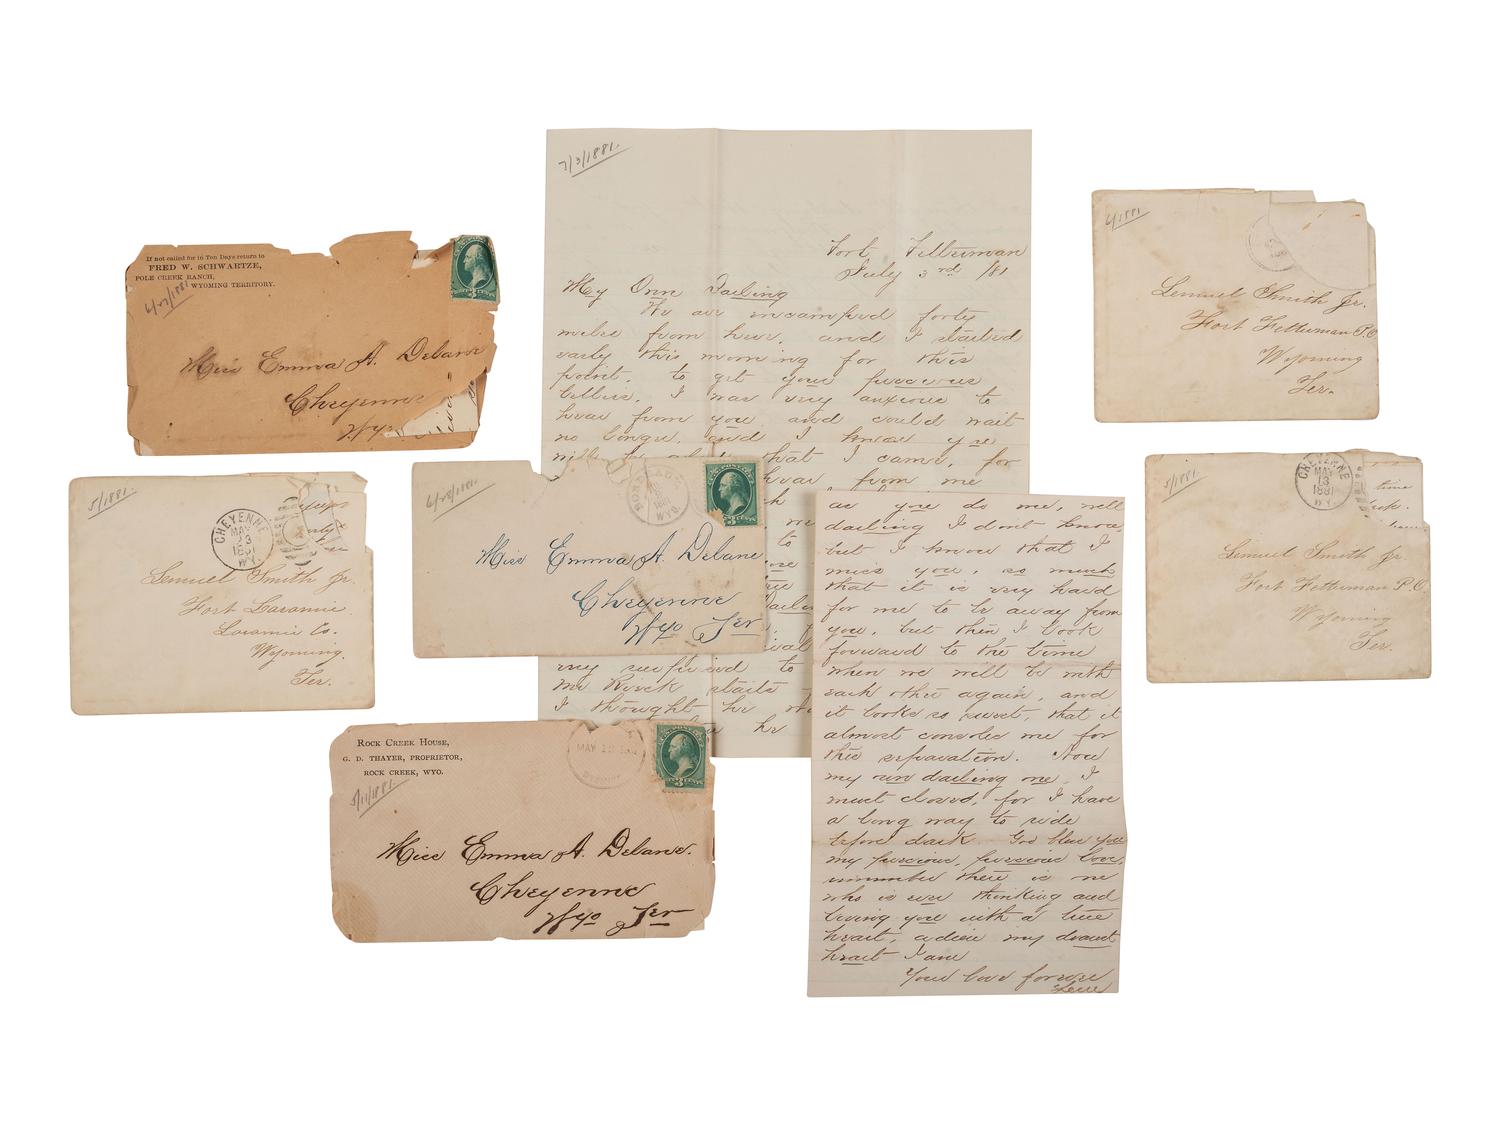 If not called for in Ten Days return to
FRED W. SCHWARTZE,
POLE CREEK RANCH,
WYOMING TERRITORY.
Miss Emma A. Delane
Cheyenne
Wyo
5/1881.
CHEYENNE
MAY
23
1881
WY.
Lemuel Smith Jr.
Fort Laramie.
Laramie Co.
Wyoming.
Ter.
6/28/1881.
WYO.
Miss Emma A. Delane
Cheyenne
Wyo Ter
ROCK CREEK HOUSE,
G. D. THAYER, PROPRIETOR,
ROCK CREEK, WYO.
5/11/1881.
MAY
Miss Emma A. Delane.
Cheyenne
Wyo Ter
7/3/1881.
Fort Fetterman
July 3rd /81
My Own Darling
We are incamped forty
miles from here, and I started
early this morning for this
point, to get your precious
letters, I was very anxious to
hear from you and could wait
no longer, and I know you
that I came, for
hear from me
to
very surprised to
Mr Rueck starts
I thought he
he
as you do me, well
darling I dont know,
but I know that I
miss you, so much
that it is very hard
for me to be away from
you, but then I look
forward to the time
when we will be with
each other again, and
it looks so sweet, that it
almost consoles me for
this separation. Now
my own darling one, I
must close, for I have
a long way to ride
before dark. God bless you
my precious, precious love,
remember there is one
who is ever thinking and
loving you with a true
heart, adieu my dearest
heart I am
Your love forever
Lem
6/1881
Lemuel Smith Jr.
Fort Fetterman P.O.
Wyoming
Ter.
5/1881.
CHEYENNE
MAY
13
1881
WY.
time
Lemuel Smith Jr.
Fort Fetterman P.O.
Wyoming
Ter.